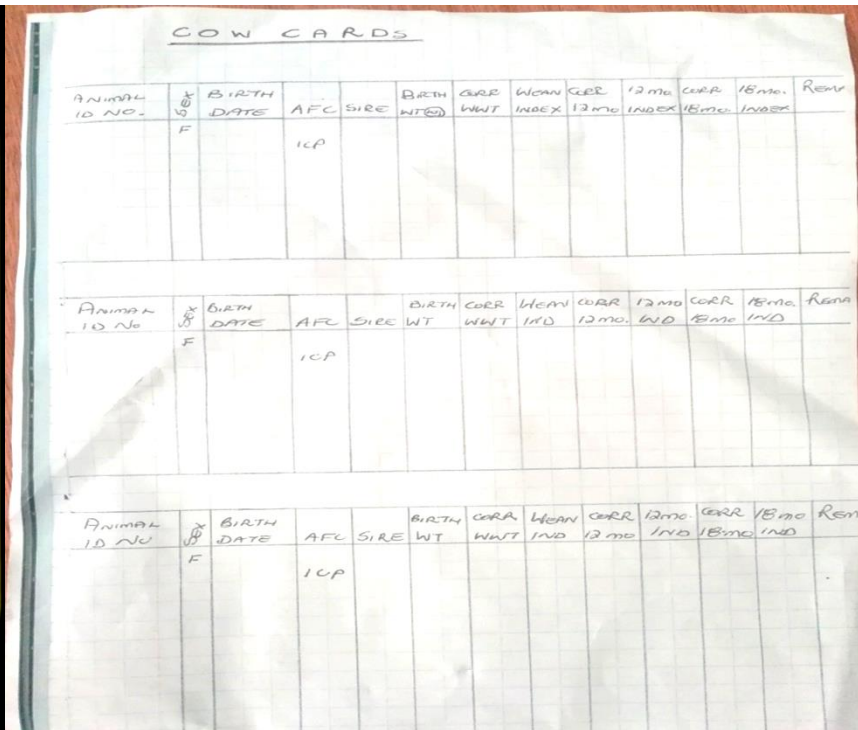 COW CARDS
ANIMAL ID NO. Sex BIRTH DATE AFC SIRE BIRTH WT CORR WWT WEAN INDEX CORR 12mo 12mo INDEX CORR 18mo. 18mo. INDEX
F
ICP
ANIMAL ID No Sex BIRTH DATE AFC SIRE BIRTH WT CORR WWT WEAN IND CORR 12mo. 12mo IND CORR 18mo 18mo. IND
F
ICP
ANIMAL ID NO Sex BIRTH DATE AFC SIRE BIRTH WT CORR WWT WEAN IND CORR 12mo 12mo. IND CORR 18mo 18mo IND
F
ICP